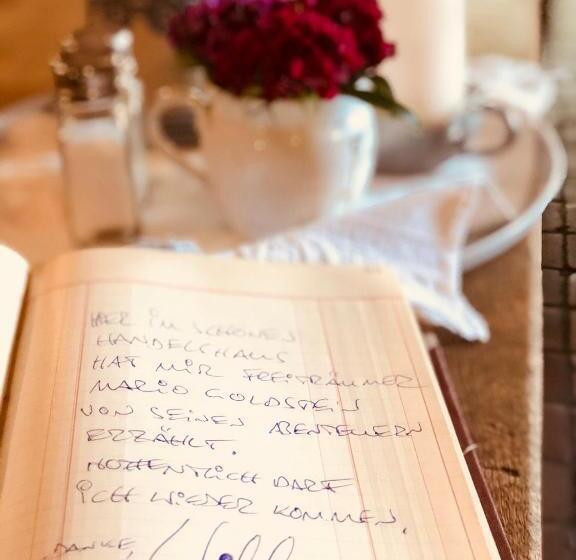 HIER IM SCHÖNEN
HANDELSHAUS
HAT MIR FREITRÄUMER
MARIO GOLDSTEIN
VON SEINEN ABENTEUERN
ERZÄHLT.
HOFFENTLICH DARF
ICH WIEDER KOMMEN.
DANKE,